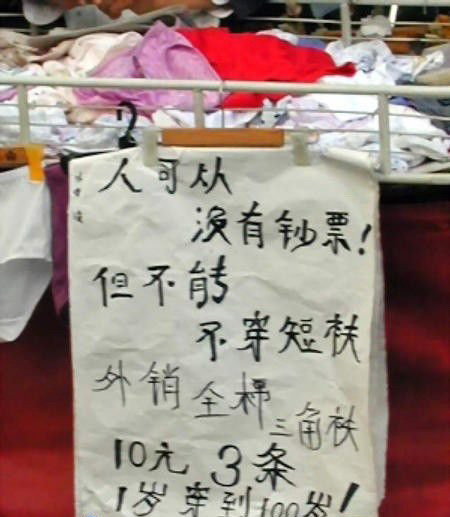 人可从
没有钞票!
但不能
不穿短衭
外销全棉
三角衭
10元3条
1岁穿到100岁!